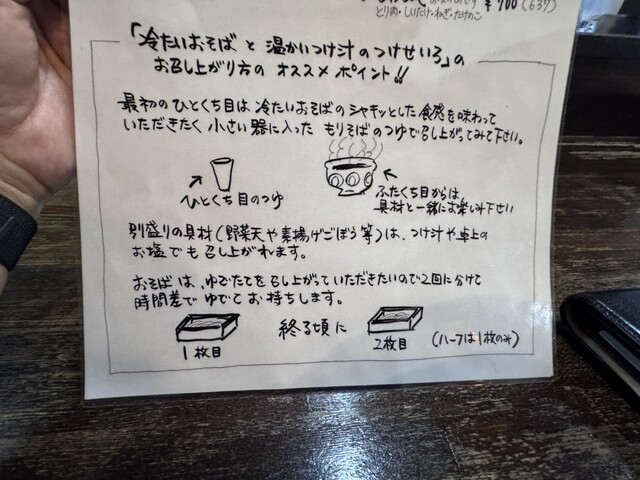 ¥700(637)
とり肉・しいたけ・ねぎ・たけのこ
「冷たいおそば と 温かいつけ汁 の つけせいろ」の
お召し上がり方の オススメ ポイント!!
最初の ひとくち目は 冷たいおそばの シャキッとした 食感を味わって
いただきたく 小さい 器に入った もりそばのつゆで召し上がってみて下さい。
ひとくち目のつゆ
ふたくち目からは、
具材と一緒にお楽しみ下さい
別盛りの具材(野菜天や素揚げごぼう等)は、つけ汁や卓上の
お塩でも召し上がれます。
おそばは、ゆでたてを召し上がっていただきたいので2回に分けて
時間差でゆでてお持ちします。
1枚目
終る頃に
2枚目
(ハーフは1枚のみ)